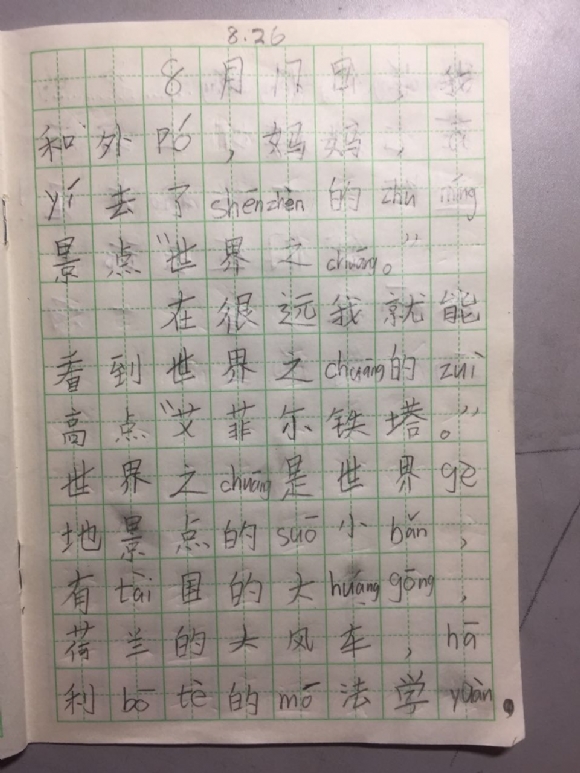 8.26
8月17日，我
和外pó，妈妈，
yí去了shēnzhèn的zhù míng
景点“世界之chuāng。”
在很远我就能
看到世界之chuāng的zuì
高点“艾菲尔铁塔。”
世界之chuāng是世界gè
地景点的suō小bǎn，
有tài国的大huánggōng，
荷兰的大风车，hā
利bō tè的mó法学yuàn，